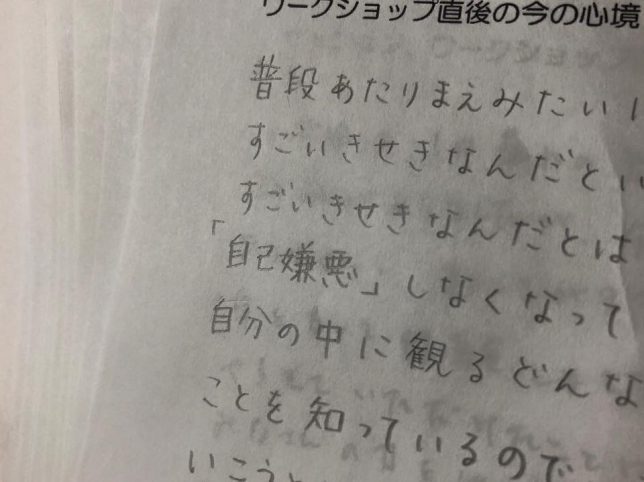 ワークショップ直後の今の心境
普段あたりまえみたいに
すごいきせきなんだとい
すごいきせきなんだとは
「自己嫌悪」しなくなって
自分の中に観るどんな
ことを知っているので
いこうと